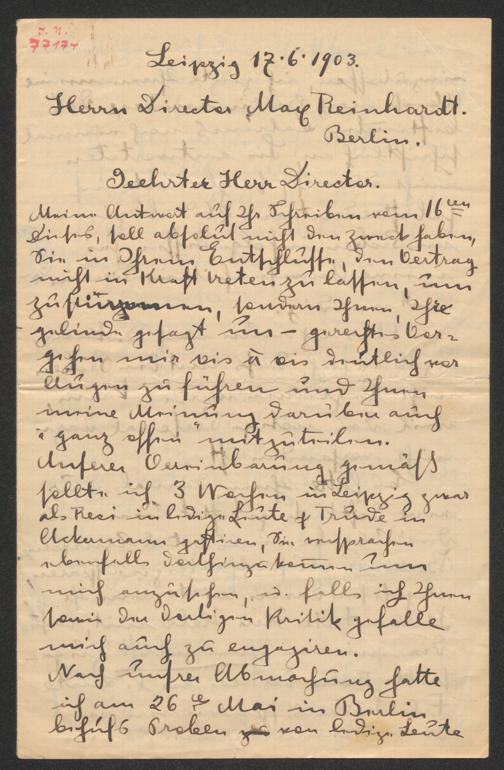 J. N.
77174
Leipzig 17·6·1903.
Herrn Director Max Reinhardt.
Berlin.
Geehrter Herr Director.
Meine Antwort auf Ihr Schreiben vom 16ten
dieses, soll absolut nicht den zweck haben,
Sie in Ihrem Entschlusse, den Vertrag
nicht in Kraft treten zu lassen, um
zu sondern Ihnen, Ihr
gelinde gesagt un- gerechtes Vor=
gehen mir vis à vis deutlich vor
Augen zu führen und Ihnen
meine Meinung darüber auch
"ganz offen" mitzuteilen.
Unserer Vereinbarung gemäß
sollte ich 3 Wochen in Leipzig zwar
als Resi in ledige Leute & Trude in
Ackermann gastiren, Sie versprachen
ebenfalls dorthinzukommen um
mich anzusehen, u. falls ich Ihnen
sowie der dortigen Kritik gefalle
mich auch zu engagiren.
Nach unsrer Abmachung hatte
ich am 26 Mai in Berlin
behufs Proben von ledige Leute